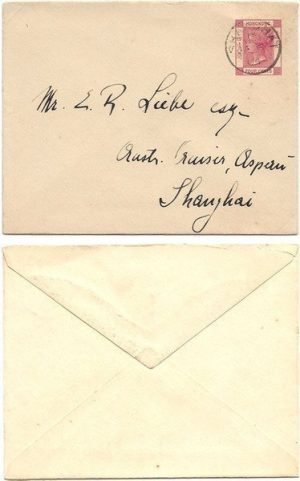 HONGKONG
SHANGHAI
Mr. E. R. Liebe esq.
Austr. Cruiser, Aspern
Shanghai